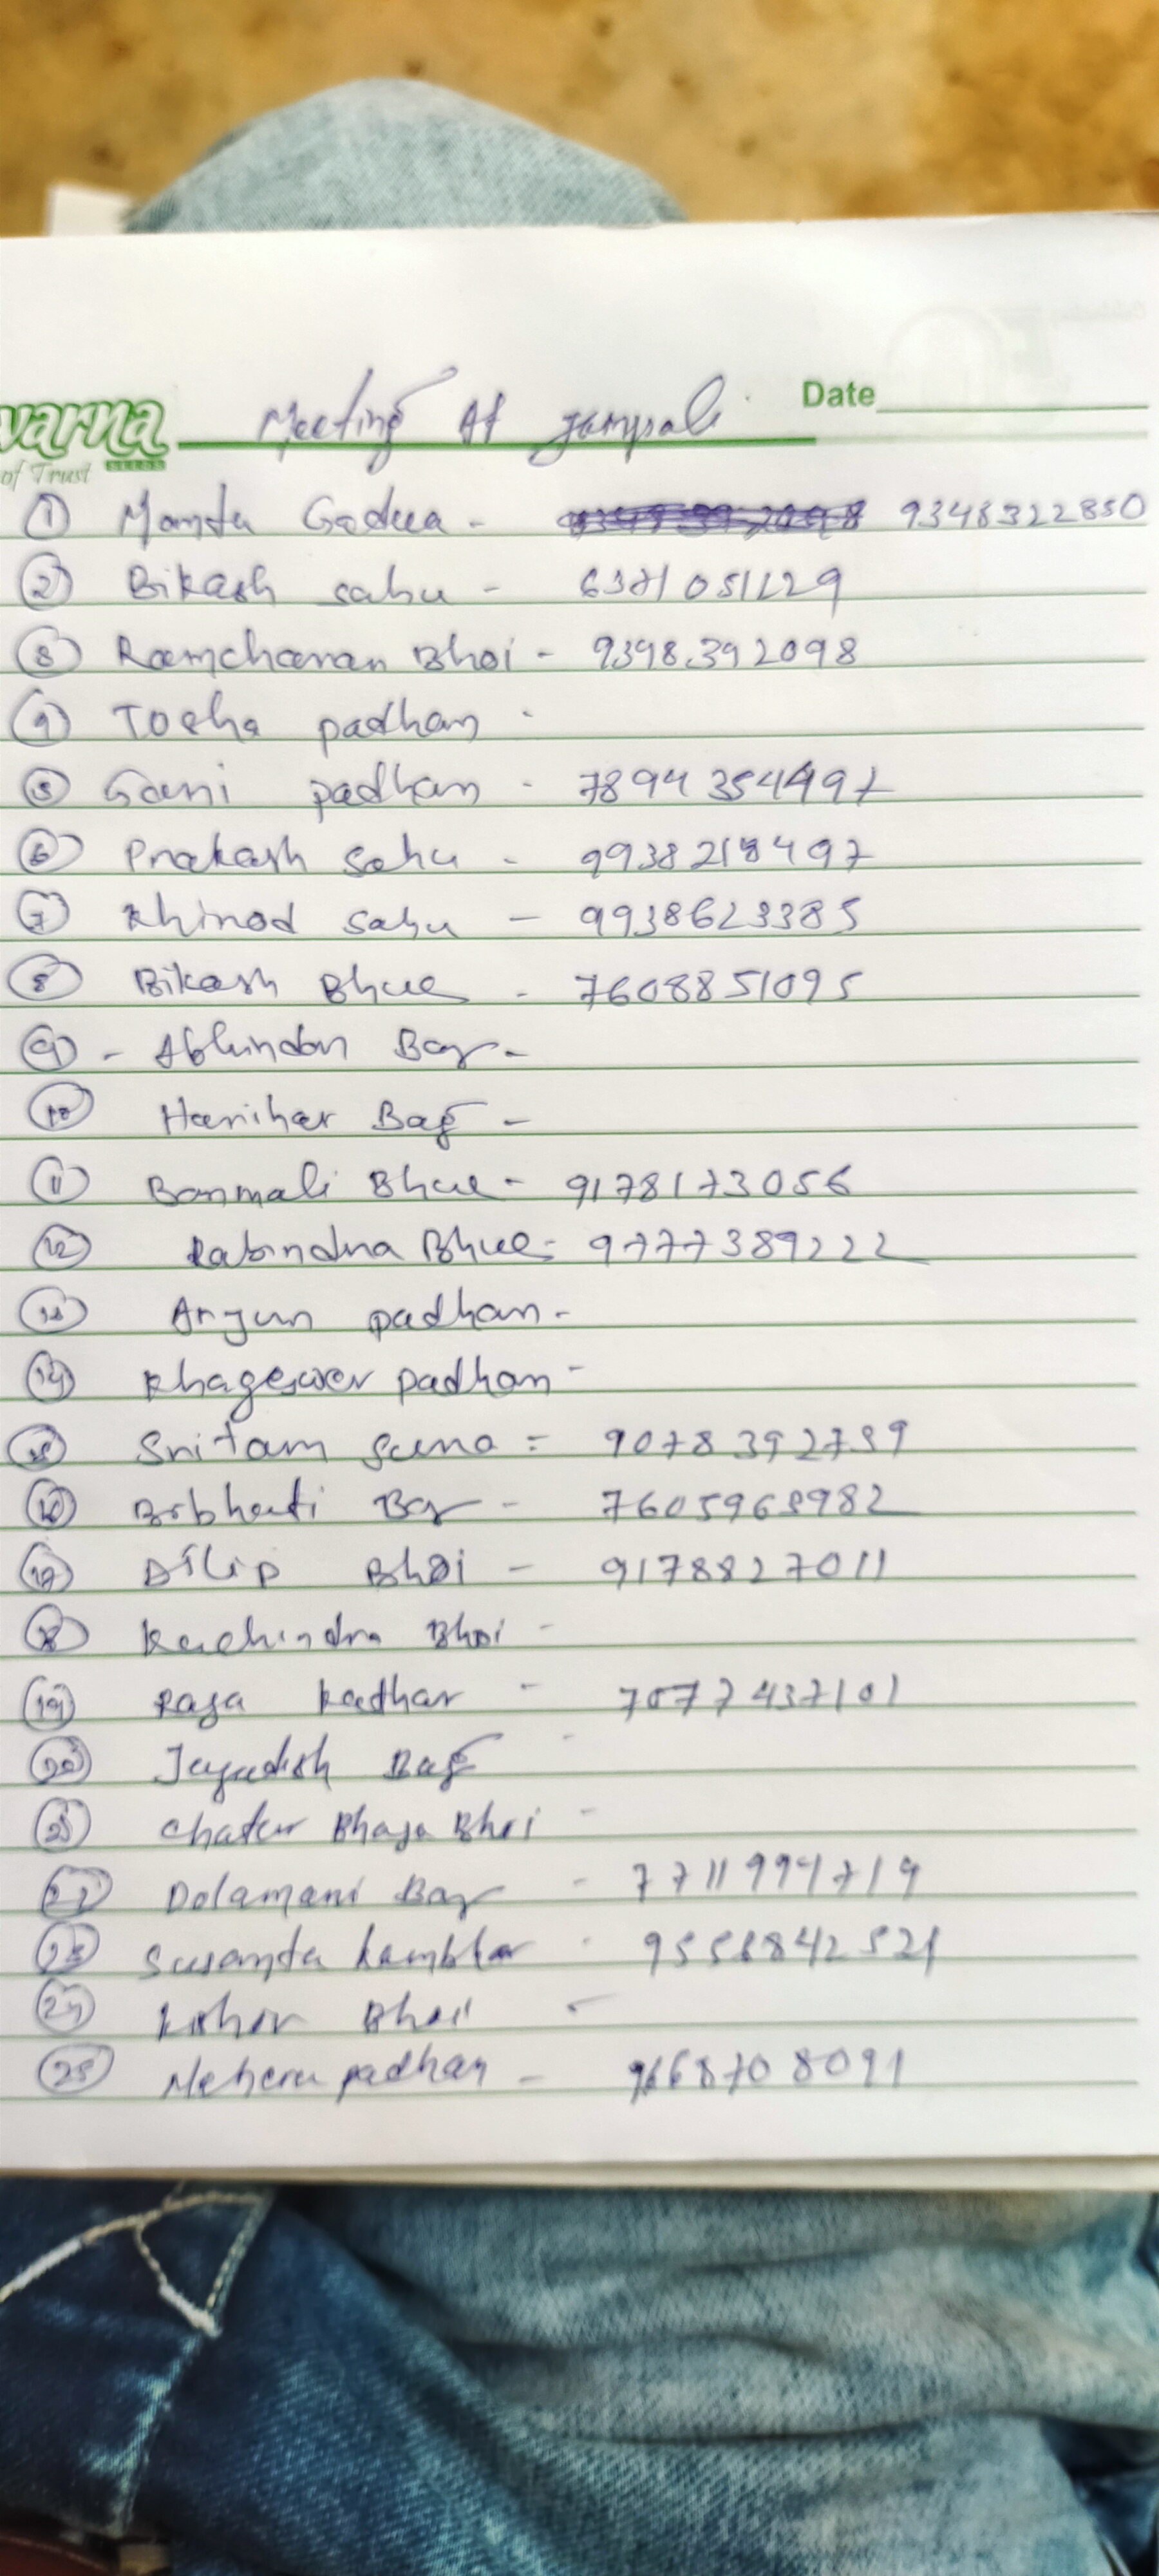 varna
of Trust SEEDS
Meeting At Jampali
Date
1 Manta Gadua - 9348322850
2 Bikash sahu - 6371051129
3 Ramcharan Bhoi - 9398392098
4 Tosha padhan -
5 Gani padhan - 7894354497
6 Prakash Sahu - 9938218497
7 Khinod sahu - 9938623385
8 Bikash Bhue - 7608851095
9 - Abhindon Bag -
10 Harihar Bag -
11 Banmali Bhue - 9178173056
12 Rabindra Bhue - 9777389222
13 Arjun padhan -
14 Khageswer padhan -
15 Sritam Suna = 9078392739
16 Bibhuti Bag - 7605963982
17 Dilip Bhoi - 9178827011
18 Bhoi -
19 Raja Kadhar - 7077437101
20 Jagadish Bag -
21 Chatur Bhaja Bhoi -
22 Dolamani Bag - 7711994719
23 Susanta - 9556842521
24 Kishor Bhoi -
25 Meheru padhan - 9668708091